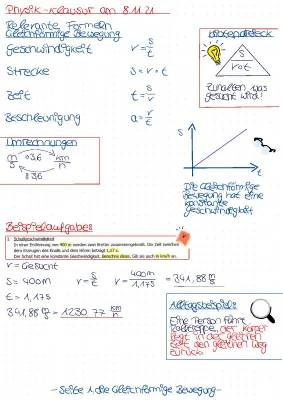 Physik-Klausur am 8.11.21
Relevante Formeln
Gleichförmige Bewegung
Geschwindigkeit v = s/t
Strecke s = v · t
Zeit t = s/v
Beschleunigung a = v/t
s
v · t
Zuhalten was
gesucht wird!
Umrechnungen
m/s
km/h
s
t
Die Gleichförmige
Bewegung hat eine
konstante
Geschwindigkeit
Beispielaufgabe:
1. Schallgeschwindigkeit
In einer Entfernung von 400 m werden zwei Bretter zusammengeknallt. Die Zeit zwischen
dem Erzeugen des Knalls und dem Hören beträgt 1,17 s.
Der Schall hat eine konstante Geschwindigkeit. Berechne diese. Gib sie auch in km/h an.
v = Gesucht
s = 400m v = s/t v = 400m/1,17s = 341,88 m/s
t = 1,17s
341,88 m/s = 1230,77 km/h
Alltagsbeispiel:
Eine Person fährt
Rolltreppe, der Körper
legt in der gleichen
Zeit den gleichen Weg
zurück.
- Seite 1 die Gleichförmige Bewegung -